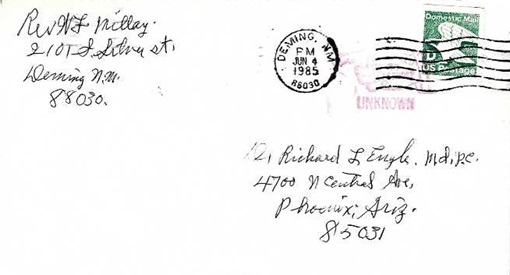 Rev W L Millay.
2107 S. Silver St,
Deming N.M.
88030.
DEMING, NM
PM
JUN 4
1985
88030
Domestic Mail
D
US Postage
UNKNOWN
Richard L Engle, M.d, p.c.
4700 N Central Ave,
Phoenix, Ariz.
85031